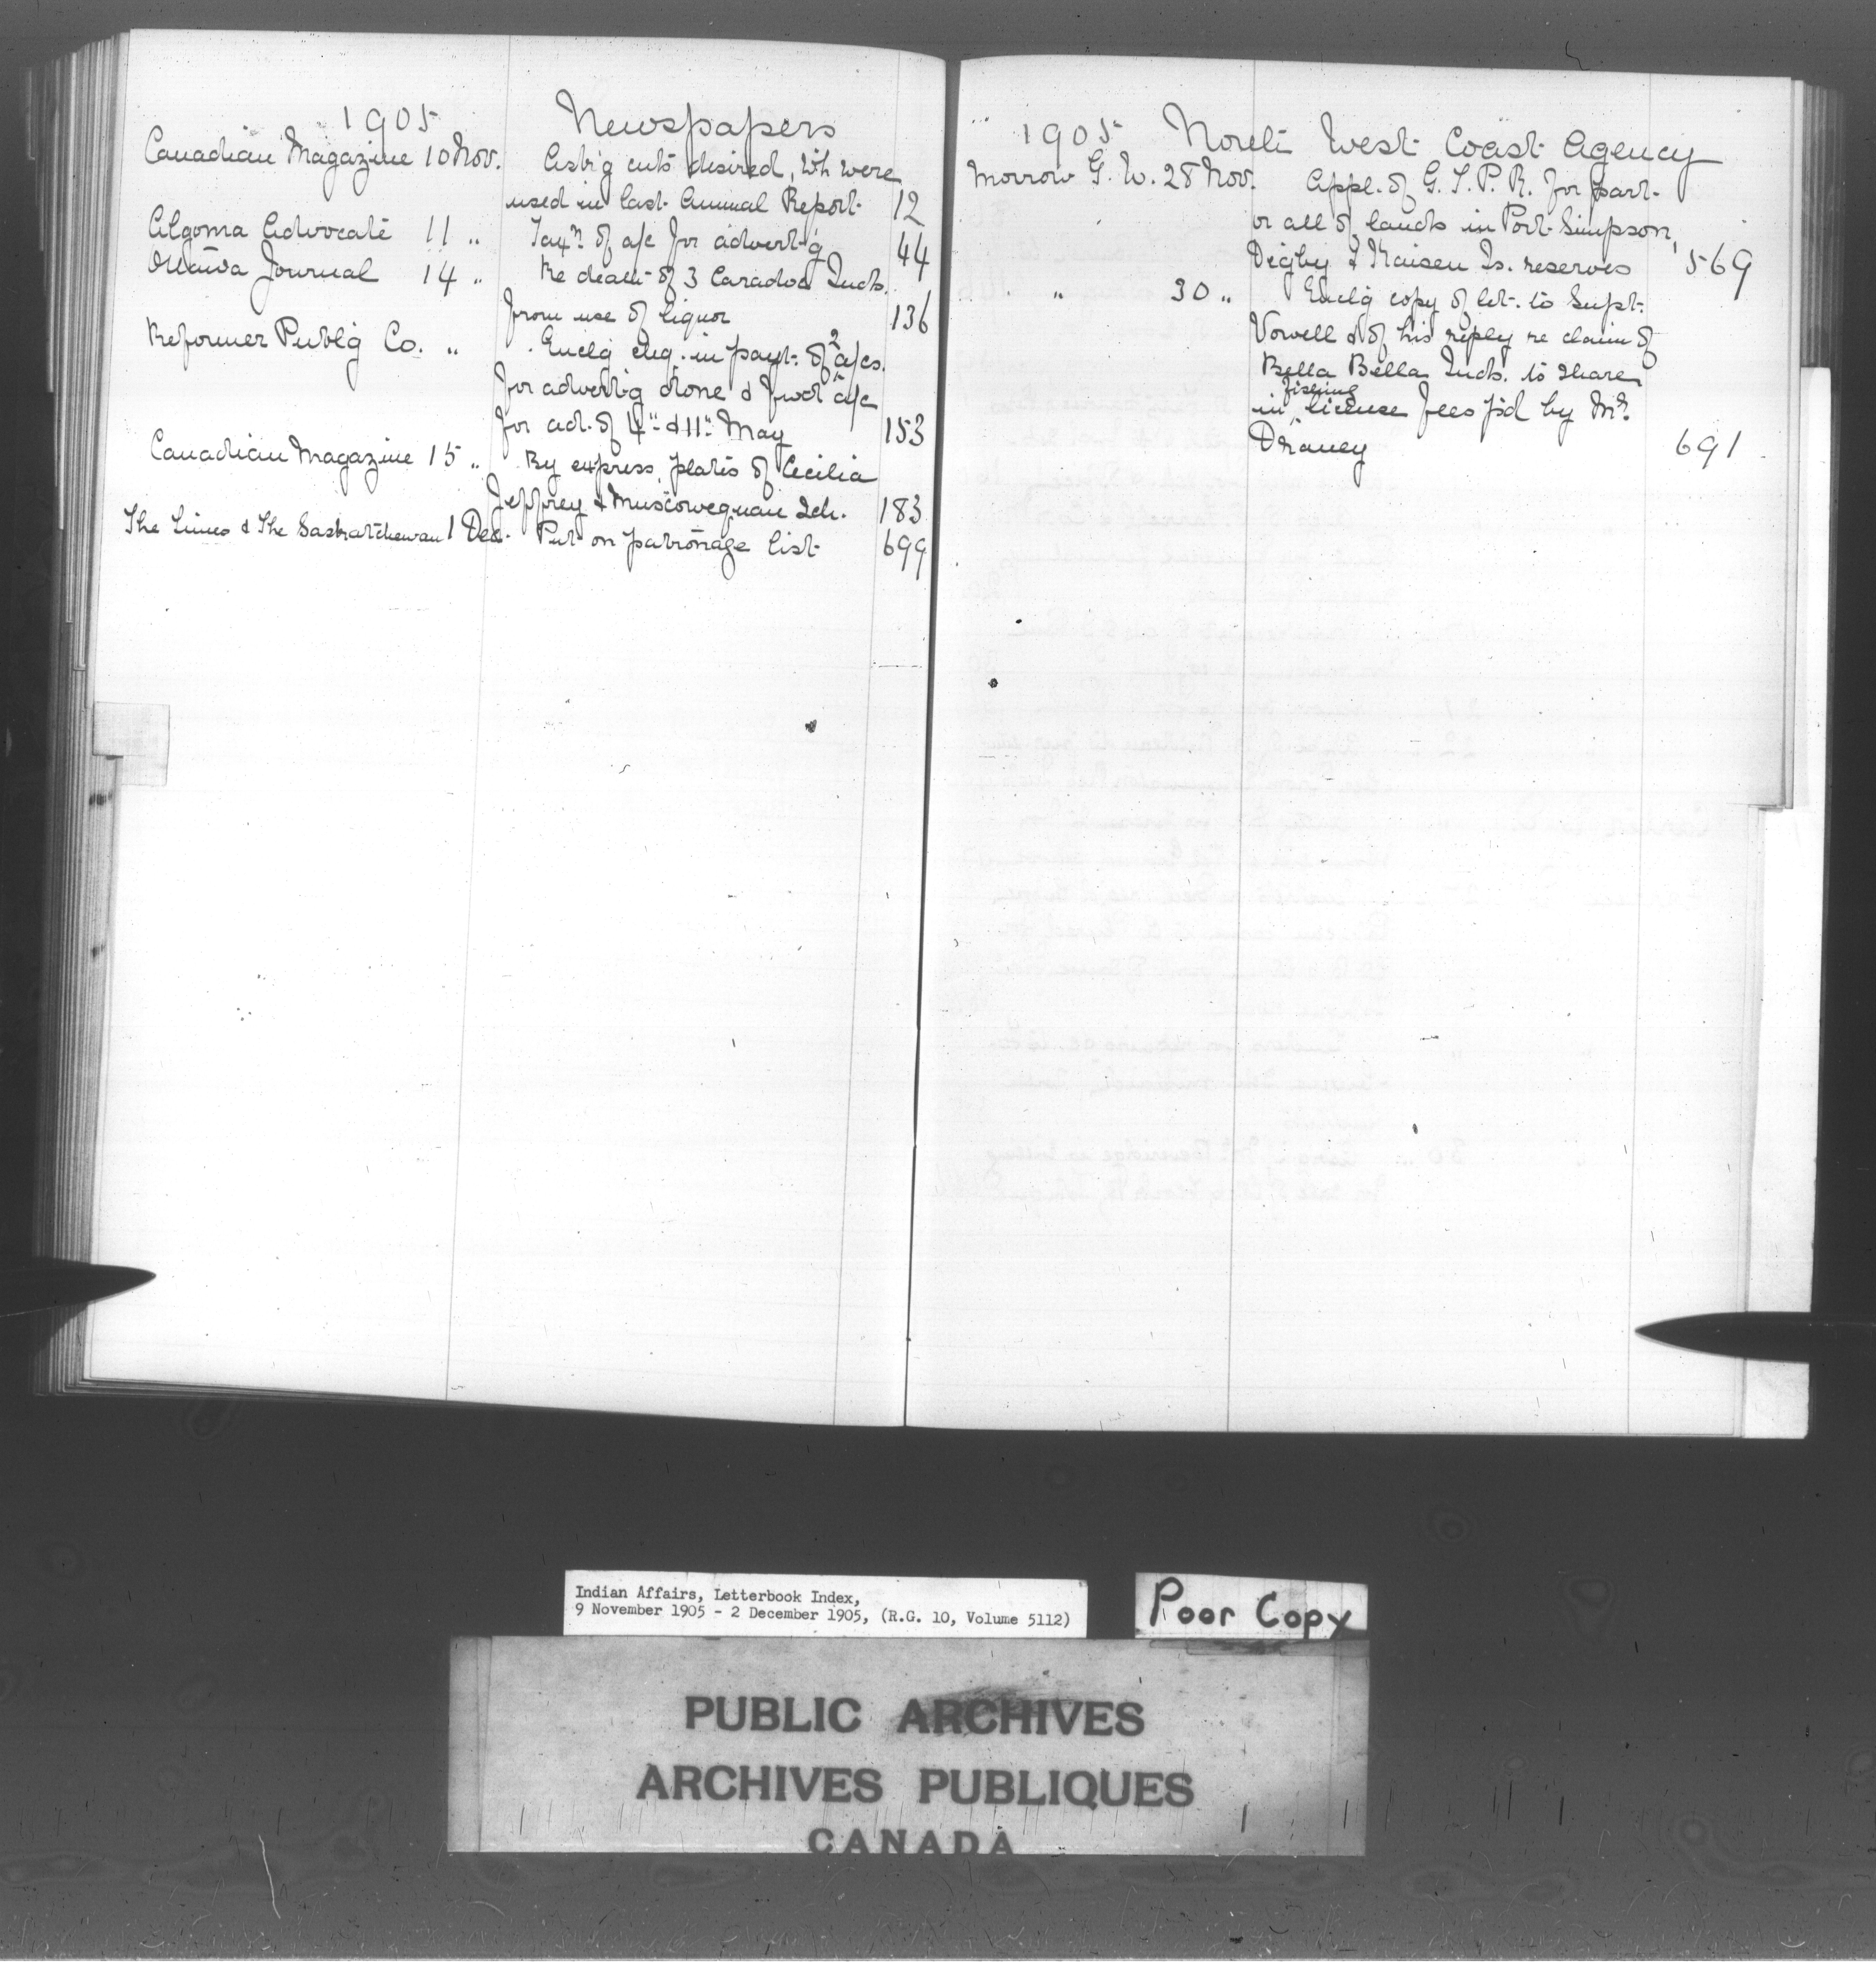 1905 Newspapers
Canadian Magazine 10 Nov. Ask'g cuts desired, wh. were
used in last Annual Report 12
Algoma Advocate 11 " Tax'n of a/c for advert'g 44
Ottawa Journal 14 " Re death of 3 Caradoc Inds.
from use of liquor 136
Reformer Publ'g Co. " Encl'g chq. in payt. of 2 a/cs.
for advert'g done & fwd a/c
for ad. of 4" & 11" May 153
Canadian Magazine 15 " By express, plates of Cecilia
Jeffrey & Muscowequan Sch. 183
The Times & The Saskatchewan 1 Dec. Put on patronage list 699
1905 North West Coast Agency
Morrow G. W. 28 Nov. Appl. of G. T. P. R. for part
or all of lands in Port Simpson,
Digby & Kaisen Is. reserves 569
" 30 " Encl'g copy of let. to Supt.
Vowell & of his reply re claim of
Bella Bella Inds. to share
in fishing license fees p'd by Mr.
Draney 691
Indian Affairs, Letterbook Index,
9 November 1905 - 2 December 1905, (R.G. 10, Volume 5112)
Poor Copy
PUBLIC ARCHIVES
ARCHIVES PUBLIQUES
CANADA